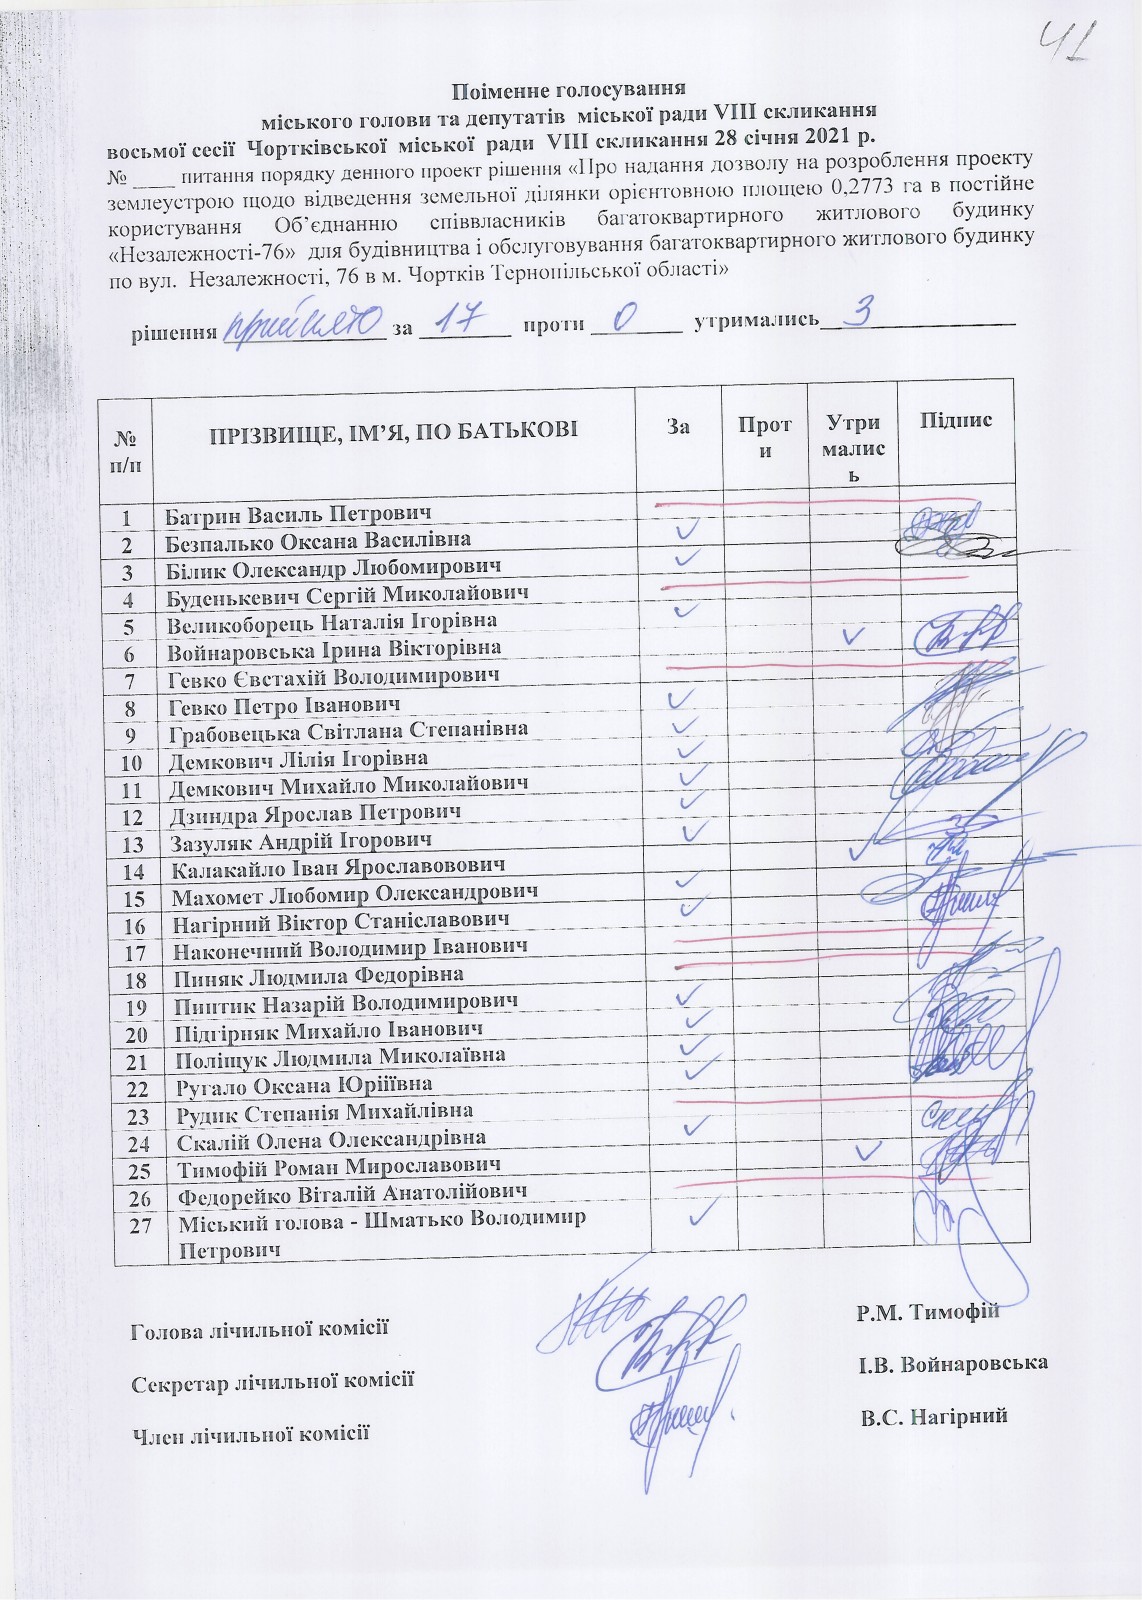 41
Поіменне голосування
міського голови та депутатів міської ради VIII скликання
восьмої сесії Чортківської міської ради VIII скликання 28 січня 2021 р.
№ ____ питання порядку денного проект рішення «Про надання дозволу на розроблення проекту
землеустрою щодо відведення земельної ділянки орієнтовною площею 0,2773 га в постійне
користування Об’єднанню співвласників багатоквартирного житлового будинку
«Незалежності-76» для будівництва і обслуговування багатоквартирного житлового будинку
по вул. Незалежності, 76 в м. Чортків Тернопільської області»
рішення прийнято за 17 проти 0 утримались 3
№ п/п ПРІЗВИЩЕ, ІМ’Я, ПО БАТЬКОВІ За Проти Утрималис ь Підпис
1 Батрин Василь Петрович
2 Безпалько Оксана Василівна ✓
3 Білик Олександр Любомирович ✓
4 Буденькевич Сергій Миколайович
5 Великоборець Наталія Ігорівна ✓
6 Войнаровська Ірина Вікторівна ✓
7 Гевко Євстахій Володимирович
8 Гевко Петро Іванович ✓
9 Грабовецька Світлана Степанівна ✓
10 Демкович Лілія Ігорівна ✓
11 Демкович Михайло Миколайович ✓
12 Дзиндра Ярослав Петрович ✓
13 Зазуляк Андрій Ігорович ✓
14 Калакайло Іван Ярославовович ✓
15 Махомет Любомир Олександрович ✓
16 Нагірний Віктор Станіславович ✓
17 Наконечний Володимир Іванович
18 Пиняк Людмила Федорівна
19 Пиптик Назарій Володимирович ✓
20 Підгірняк Михайло Іванович ✓
21 Поліщук Людмила Миколаївна ✓
22 Ругало Оксана Юріїївна ✓
23 Рудик Степанія Михайлівна
24 Скалій Олена Олександрівна ✓
25 Тимофій Роман Мирославович ✓
26 Федорейко Віталій Анатолійович
27 Міський голова - Шматько Володимир ✓
Петрович
Голова лічильної комісії Р.М. Тимофій
Секретар лічильної комісії І.В. Войнаровська
Член лічильної комісії В.С. Нагірний